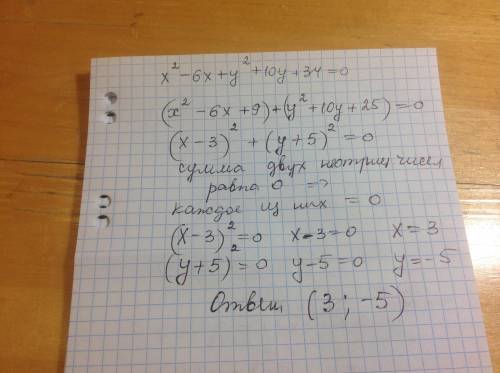 x² - 6x + y² + 10y + 34 = 0
(x² - 6x + 9) + (y² + 10y + 25) = 0
(x - 3)² + (y + 5)² = 0
сумма двух неотриц чисел
равна 0 =>
каждое из них = 0
(x - 3)² = 0 x - 3 = 0 x = 3
(y + 5)² = 0 y - 5 = 0 y = -5
Ответ (3; -5)